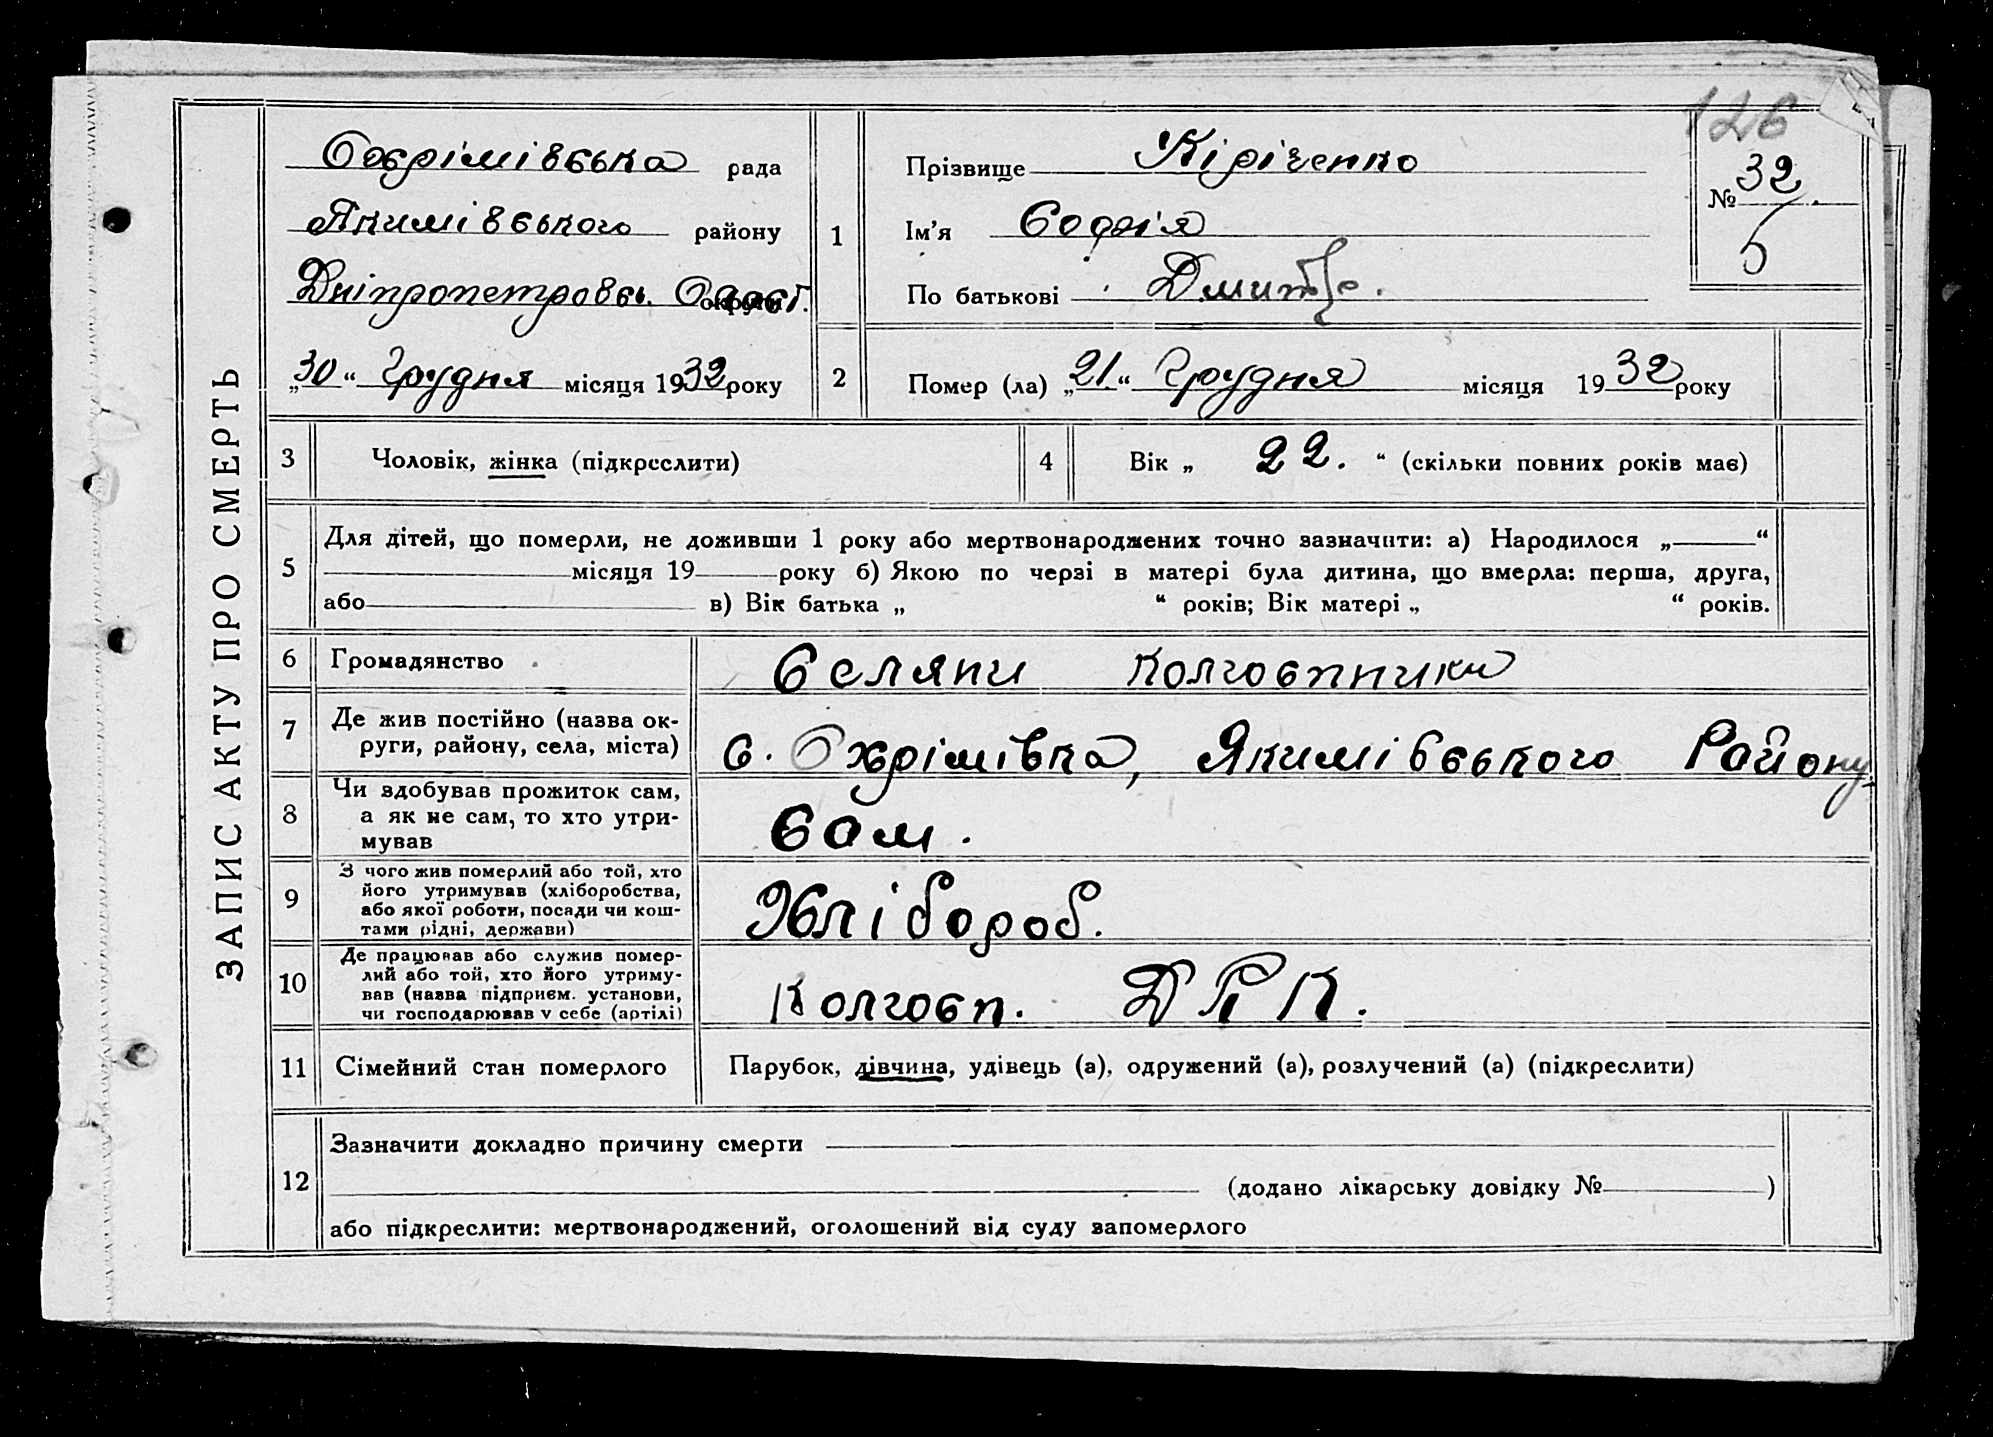 ЗАПИС АКТУ ПРО СМЕРТЬ
126
Охрімівська рада
Якимівського району
Дніпропетровсь. Област.
„30“ Грудня місяця 1932 року
1
Прізвище Кіріченко
Ім’я Софія
По батькові Дмитр.
№ 32
5
2
Помер (ла) „21“ Грудня місяця 1932 року
3 Чоловік, жінка (підкреслити)
4 Вік „ 22. “ (скільки повних років має)
5
Для дітей, що померли, не доживши 1 року або мертвонароджених точно зазначити: а) Народилося „ “
місяця 19 року б) Якою по черзі в матері була дитина, що вмерла: перша, друга,
або в) Вік батька „ “ років; Вік матері „ “ років.
6 Громадянство Селяни Колгоспники
7 Де жив постійно (назва ок-
руги, району, села, міста)
с. Охрімівка, Якимівського Району
8 Чи здобував прожиток сам,
а як не сам, то хто утри-
мував
Сам.
9 З чого жив померлий або той, хто
його утримував (хліборобства,
або якої роботи, посади чи кош-
тами рідні, держави)
Хлібороб.
10 Де працював або служив помер-
лий або той, хто його утриму-
вав (назва підприєм. установи,
чи господарював у себе (артілі)
Колгосп. ДРК.
11 Сімейний стан померлого Парубок, дівчина, удівець (а), одружений (а), розлучений (а) (підкреслити)
12 Зазначити докладно причину смерти
(додано лікарську довідку № )
або підкреслити: мертвонароджений, оголошений від суду запомерлого